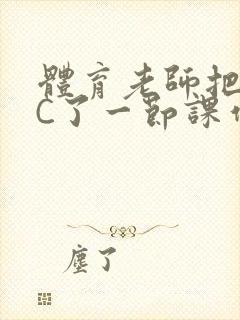 體育老師把
C了一節課
塵了